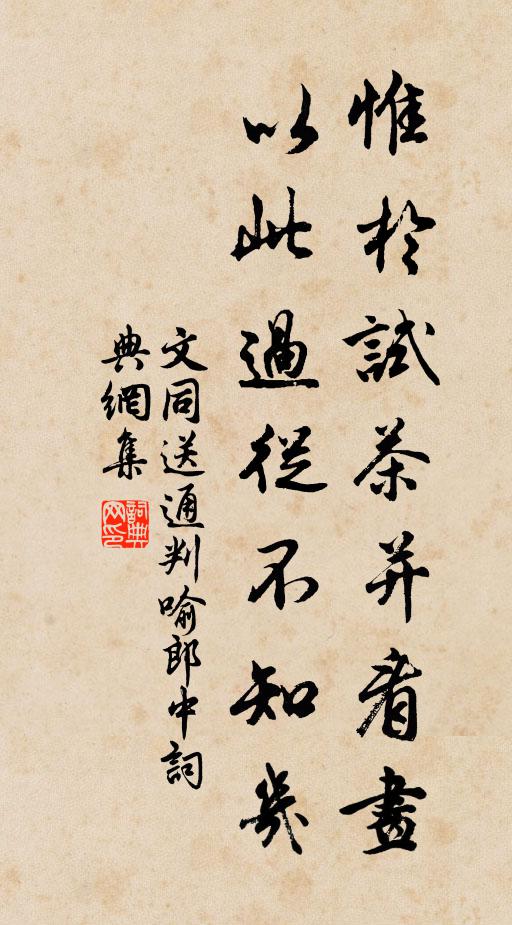 惟於試茶并看畫
以此過從不知幾
文同送通判喻郎中詞
典網集
詞典网印